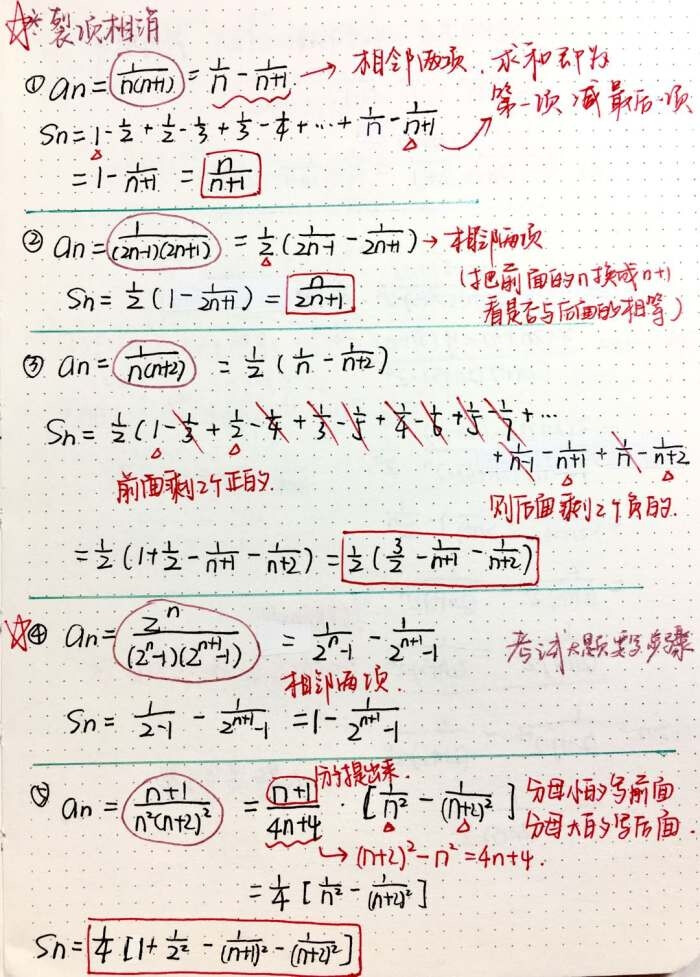 ☆ 裂项相消
① an = 1/n(n+1) = 1/n - 1/n+1 → 相邻两项, 求和即为
第一项减最后一项
Sn = 1 - 1/2 + 1/2 - 1/3 + 1/3 - 1/4 + ... + 1/n - 1/n+1
= 1 - 1/n+1 = n/n+1
② an = 1/(2n-1)(2n+1) = 1/2 (1/2n-1 - 1/2n+1) → 相邻两项
(把前面的n换成n+1
看是否与后面的相等)
Sn = 1/2 (1 - 1/2n+1) = n/2n+1
③ an = 1/n(n+2) = 1/2 (1/n - 1/n+2)
Sn = 1/2 (1 - 1/3 + 1/2 - 1/4 + 1/3 - 1/5 + 1/4 - 1/6 + 1/5 - 1/7 + ...
+ 1/n-1 - 1/n+1 + 1/n - 1/n+2
前面剩2个正的.
则后面剩2个负的.
= 1/2 (1 + 1/2 - 1/n+1 - 1/n+2) = 1/2 (3/2 - 1/n+1 - 1/n+2)
☆ ④ an = 2^n/(2^n-1)(2^(n+1)-1) = 1/2^n-1 - 1/2^(n+1)-1
考试大题要写步骤
相邻两项.
Sn = 1/2-1 - 1/2^(n+1)-1 = 1 - 1/2^(n+1)-1
分子提出来.
⑤ an = n+1/n²(n+2)² = n+1/4n+4 · [1/n² - 1/(n+2)²]
分母小的写前面
分母大的写后面.
→ (n+2)² - n² = 4n+4.
= 1/4 [1/n² - 1/(n+2)²]
Sn = 1/4 [1 + 1/2² - 1/(n+1)² - 1/(n+2)²]